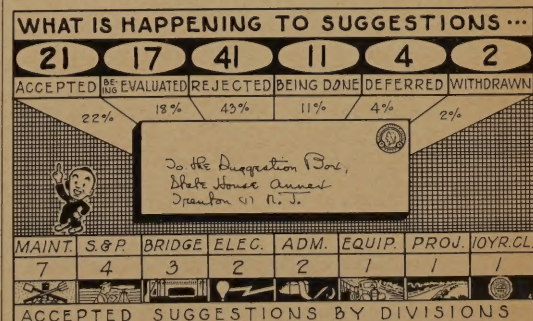 WHAT IS HAPPENING TO SUGGESTIONS...
21 17 41 11 4 2
ACCEPTED BEING EVALUATED REJECTED BEING DONE DEFERRED WITHDRAWN
22% 18% 43% 11% 4% 2%
To the Suggestion Box,
State House Annex
Trenton N. J.
MAINT. S.&P. BRIDGE ELEC. ADM. EQUIP. PROJ. 10YR.CL.
7 4 3 2 2 1 1 1
ACCEPTED SUGGESTIONS BY DIVISIONS